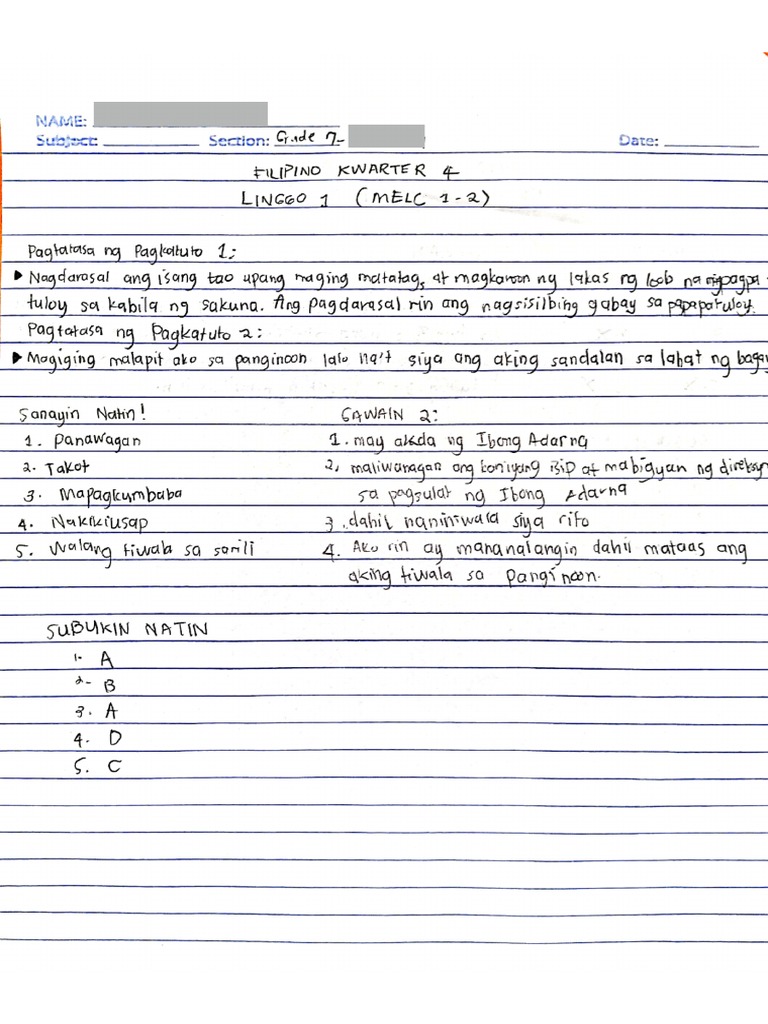 NAME:
Subject: Section: Grade 7- Date:
FILIPINO KWARTER 4
LINGGO 1 (MELC 1-2)
Pagtatasa ng Pagkatuto 1:
Nagdarasal ang isang tao upang maging matatag, at magkaroon ng lakas ng loob na
tuloy sa kabila ng sakuna. Ang pagdarasal rin ang nagsisilbing gabay sa
Pagtatasa ng Pagkatuto 2:
Magiging malapit ako sa panginoon lalo na't siya ang aking sandalan sa lahat ng
Sanayin Natin!
1. Panawagan
2. Takot
3. Mapagkumbaba
4. Nakikiusap
5. Walang tiwala sa sarili
GAWAIN 2:
1. may akda ng Ibong Adarna
2, maliwanagan ang kaniyang isip at mabigyan ng
sa pagsulat ng Ibong Adarna
3. dahil naniniwala siya rito
4. Ako rin ay mananalangin dahil mataas ang
aking tiwala sa panginoon.
SUBUKIN NATIN
1. A
2- B
3. A
4. D
5. C